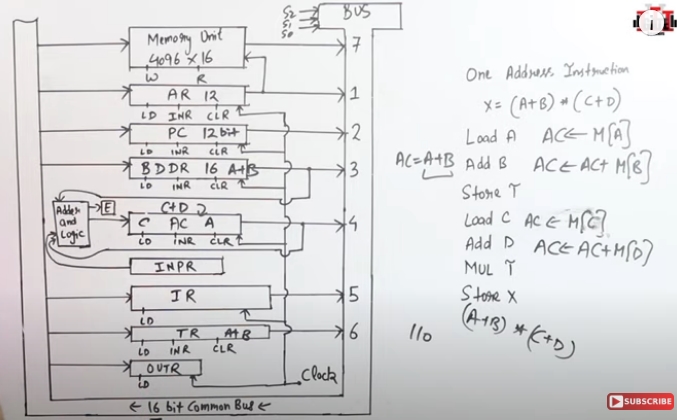 S2
S1
S0
BUS
Memory Unit
4096 × 16
W R
7
AR 12
LD INR CLR
1
PC 12bit
LD INR CLR
2
B D DR 16 A+B
LD INR CLR
3
Adder
and
Logic
E
C+D
C AC A
LD INR CLR
4
INPR
IR
LD
5
TR A+B
LD INR CLR
6
OUTR
LD
Clock
← 16 bit Common Bus ←
One Address Instruction
X = (A+B) * (C+D)
Load A AC ← M[A]
AC=A+B Add B AC ← AC+ M[B]
Store T
Load C AC ← M[C]
Add D AC ← AC+M[D]
MUL T
Store X
(A+B) * (C+D)
110
SUBSCRIBE